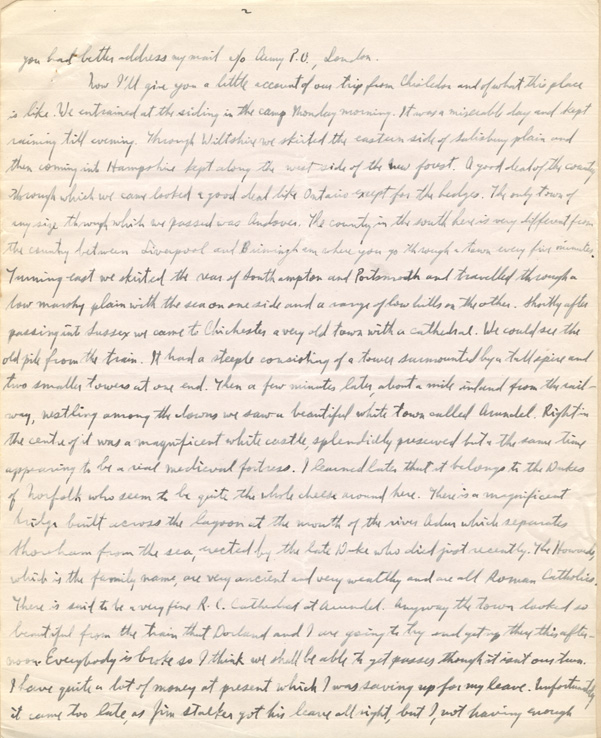 2
you had better address my mail c/o Army P.O., London.
Now I'll give you a little account of our trip from Chiseldon and of what this place
is like. We entrained at the siding in the camp Monday morning. It was a miserable day and kept
raining till evening. Through Wiltshire we skirted the eastern side of Salisbury plain and
then coming into Hampshire kept along the west side of the new forest. A good deal of the country
through which we came looked a good deal like Ontario except for the hedges. The only town of
any size through which we passed was Andover. The country in the south here is very different from
the country between Liverpool and Birmingham where you go through a town every five minutes.
Turning east we skirted the rear of Southampton and Portsmouth and travelled through a
low marshy plain with the sea on one side and a range of low hills on the other. Shortly after
passing into Sussex we came to Chichester a very old town with a cathedral. We could see the
old pile from the train. It had a steeple consisting of a tower surmounted by a tall spire and
two smaller towers at one end. Then a few minutes later, about a mile inland from the rail-
way, nestling among the downs we saw a beautiful white town called Arundel. Right in
the centre of it was a magnificent white castle, splendidly preserved but at the same time
appearing to be a real medieval fortress. I learned later that it belongs to the Dukes
of Norfolk who seem to be quite the whole cheese around here. There is a magnificent
bridge built across the lagoon at the mouth of the river Adur which separates
Shoreham from the sea, erected by the late Duke who died just recently. The Howards,
which is the family name, are very ancient and very wealthy and are all Roman Catholics.
There is said to be a very fine R.C. Cathedral at Arundel. Anyway the town looked so
beautiful from the train that Dorland and I are going to try and get up there this after-
noon. Everybody is broke so I think we shall be able to get passes though it isnt our turn.
I have quite a lot of money at present which I was saving up for my leave. Unfortunately
it came too late, as Jim Stalker got his leave all right, but I, not having enough